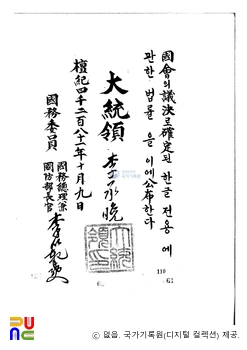 國會의議決로確定된 한글 전용 에
관한 법률 을 이에公布한다
大統領 李承晩
檀紀四千二百八十一年十月九日
國務委員 國務總理兼
國防部長官 李範奭
大統
領印
110
G1
ⓒ 없음. 국가기록원(디지털 컬렉션) 제공.